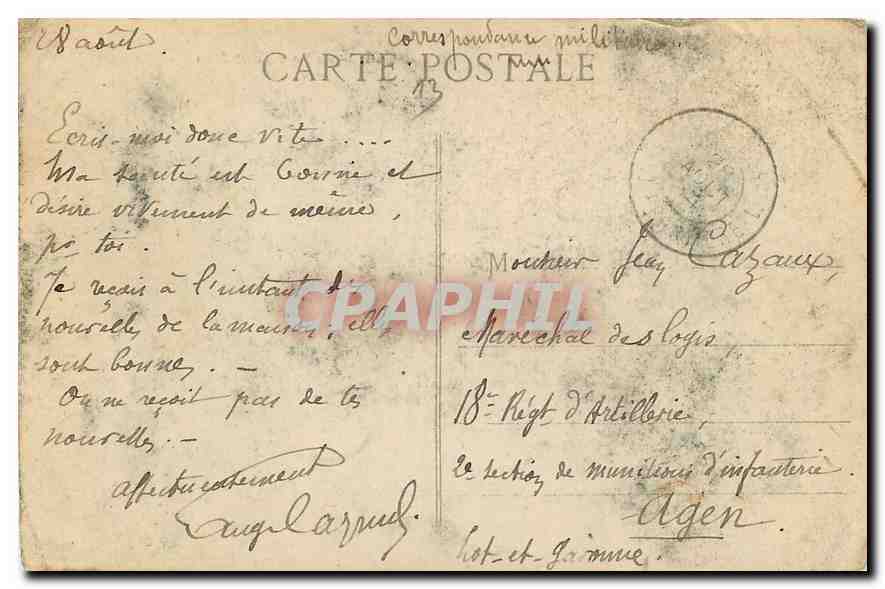 28 août.
Correspondance militaire
CARTE POSTALE
13
Ecris-moi donc vite ....
Ma santé est bonne et
désire vivement de même,
pr toi.
Je reçois à l'instant des
nouvelles de la maison, elles
sont bonnes. -
On ne reçoit pas de tes
nouvelles. -
Affectueusement
Monsieur Jean Cazaux,
Maréchal des logis,
18e Régt d'Artillerie,
2e section de munitions d'infanterie.
Agen
Lot-et-Garonne.
CPAPHIL